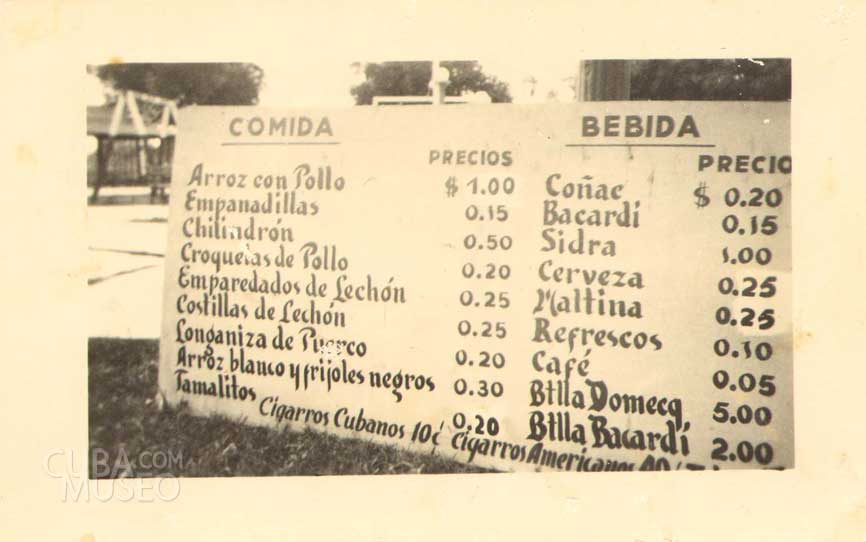 COMIDA
PRECIOS
Arroz con Pollo $ 1.00
Empanadillas 0.15
Chilindrón 0.50
Croquetas de Pollo 0.20
Emparedados de Lechón 0.25
Costillas de Lechón 0.25
Longaniza de Puerco 0.20
Arroz blanco y frijoles negros 0.30
Tamalitos 0.20
BEBIDA
PRECIO
Coñac $ 0.20
Bacardí 0.15
Sidra 1.00
Cerveza 0.25
Maltina 0.25
Refrescos 0.10
Café 0.05
Btlla Domecq 5.00
Btlla Bacardí 2.00
Cigarros Cubanos 10¢ Cigarros Americanos
CUBA.COM
MUSEO